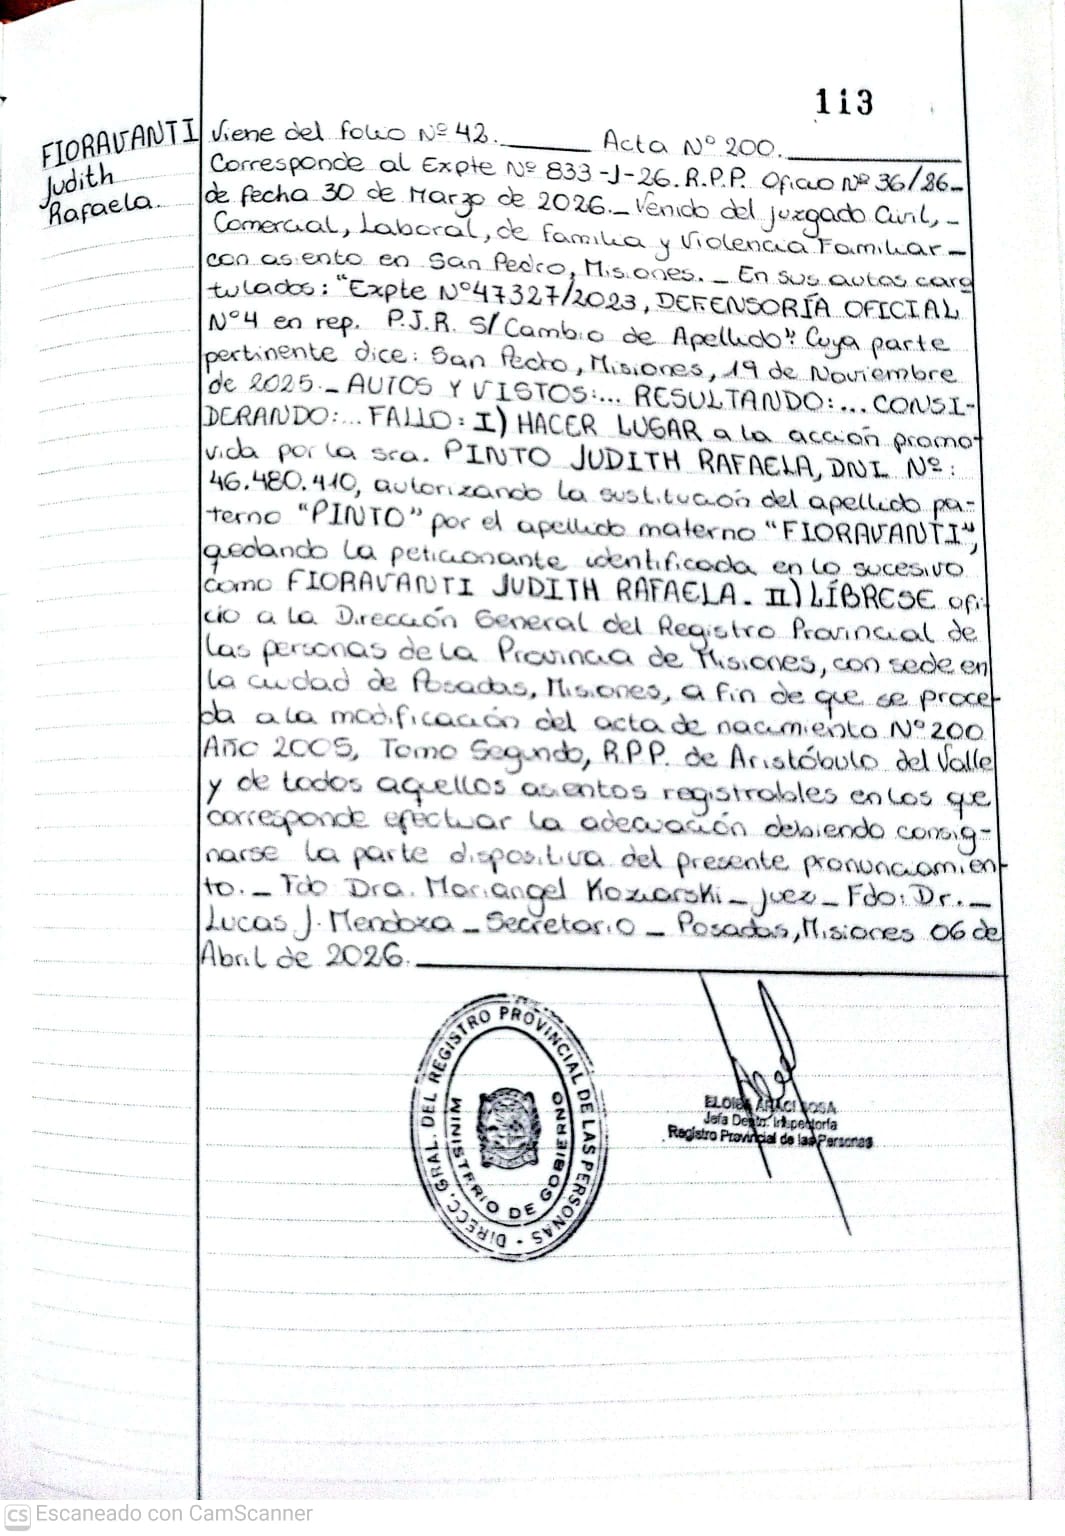 113
FIORAVANTI
Judith
Rafaela.
Viene del folio Nº 42. Acta Nº 200.
Corresponde al Expte Nº 833-J-26. R.P.P. Oficio Nº 36/26_
de fecha 30 de Marzo de 2026._ Venido del juzgado Civil,_
Comercial, Laboral, de familia y Violencia Familiar_
con asiento en San Pedro, Misiones._ En sus autos cara
tulados: "Expte Nº47327/2023, DEFENSORÍA OFICIAL
Nº4 en rep. P.J.R. S/ Cambio de Apellido". Cuya parte
pertinente dice: San Pedro, Misiones, 19 de Noviembre
de 2025._ AUTOS Y VISTOS:... RESULTANDO:... CONSI-
DERANDO:... FALLO: I) HACER LUGAR a la acción promo-
vida por la sra. PINTO JUDITH RAFAELA, DNI. Nº:
46.480.410, autorizando la sustitución del apellido pa-
terno "PINTO" por el apellido materno "FIORAVANTI",
quedando la peticionante identificada en lo sucesivo
como FIORAVANTI JUDITH RAFAELA. II) LÍBRESE ofi-
cio a la Dirección General del Registro Provincial de
las personas de la Provincia de Misiones, con sede en
la ciudad de Posadas, Misiones, a fin de que se proce-
da a la modificación del acta de nacimiento Nº200
Año 2005, Tomo Segundo, R.P.P. de Aristóbulo del Valle
y de todos aquellos asientos registrables en los que
corresponde efectuar la adecuación debiendo consig-
narse la parte dispositiva del presente pronunciamien-
to._ Fdo Dra. Mariangel Koziarski_ juez_ Fdo: Dr._
Lucas J. Mendoza_ Secretario_ Posadas, Misiones 06 de
Abril de 2026.
DIRECC. GRAL. DEL REGISTRO PROVINCIAL DE LAS PERSONAS
MINISTERIO DE GOBIERNO
ELOISA ARACI SOSA
Jefa Depto. Inspectoría
Registro Provincial de las Personas
CS Escaneado con CamScanner